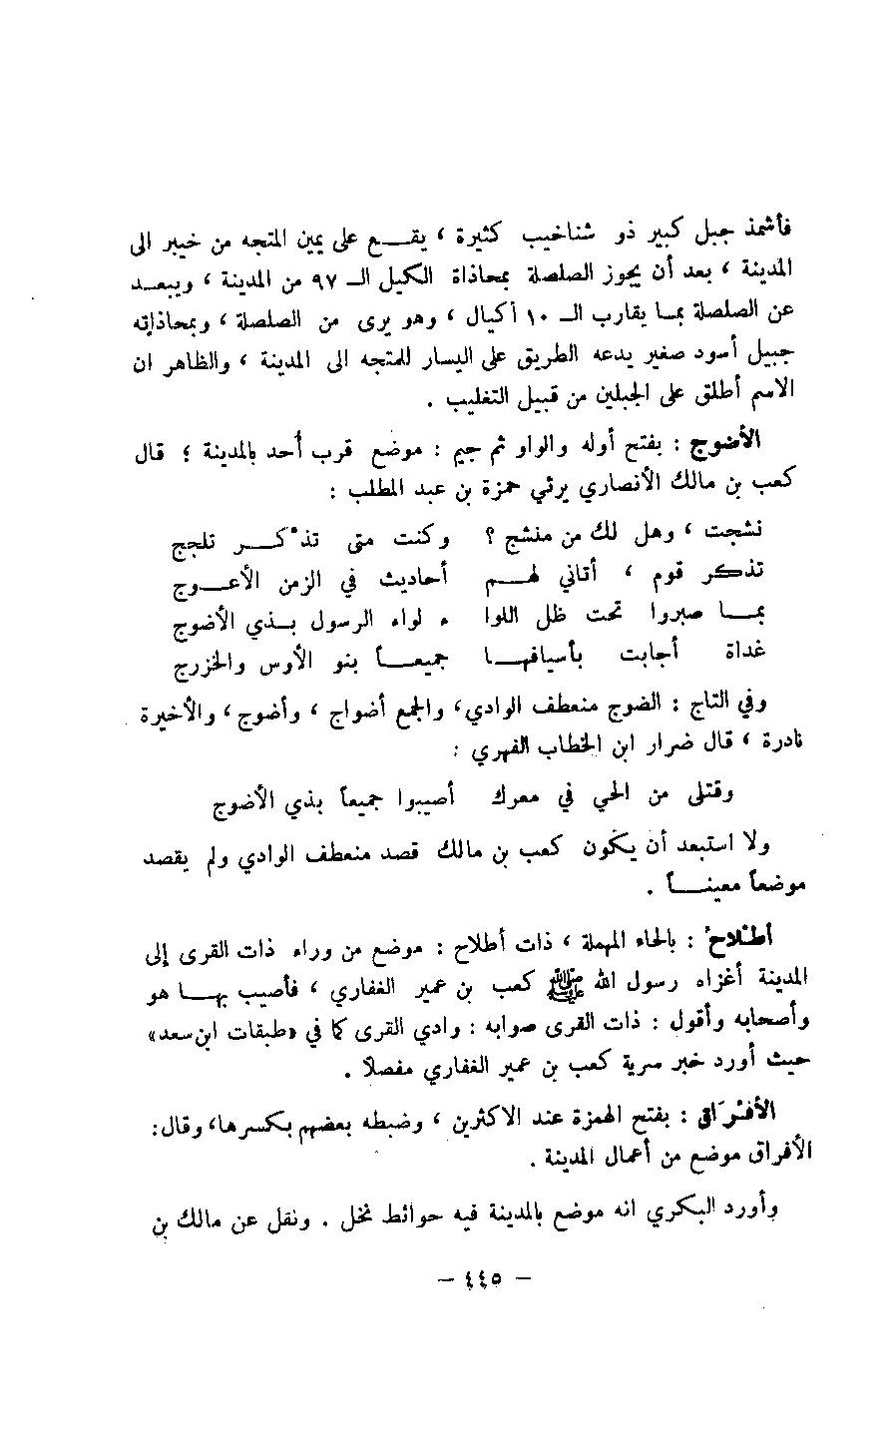 فأشمذ جبل كبير ذو شناخيب كثيرة ، يقـــع على يمين المتجه من خيبر الى
المدينة ، بعد أن يجوز الصلصلة بمحاذاة الكيل الـ ٩٧ من المدينة ، ويبعـــد
عن الصلصلة بمـــا يقارب الـ ١٠ أكيال ، وهو يرى من الصلصلة ، وبمحاذاته
جبيل أسود صغير يدعه الطريق على اليسار للمتجه الى المدينة ، والظاهر ان
الاسم أطلق على الجبلين من قبيل التغليب .
الأضوج : بفتح أوله والواو ثم جيم : موضع قرب أُحد بالمدينة ؛ قال
كعب بن مالك الأنصاري يرثي حمزة بن عبد المطلب :
نشجت ، وهل لك من منشج ؟ وكنت متى تذْكـــر تلجج
تذكر قوم ، أتاني لهـــم أحاديث في الزمن الأعـــوج
بمـــا صبروا تحت ظل اللوا ء لواء الرسول بـــذي الأضوج
غداة أجابت بأسيافهـــا جميعـــاً بنو الأوس والخزرج
وفي التاج : الضوج منعطف الوادي، والجمع أضواج ، وأضوج ، والأخيرة
نادرة ، قال ضرار ابن الخطاب الفهري :
وقتلى من الحي في معرك أصيبوا جميعاً بذي الأضوج
ولا استبعد أن يكون كعب بن مالك قصد منعطف الوادي ولم يقصد
موضعاً معينـــاً .
أطْلاحُ : بالحاء المهملة ، ذات أطلاح : موضع من وراء ذات القرى إلى
المدينة أغزاه رسول الله ﷺ كعب بن عمير الغفاري ، فأصيب بهـــا هو
وأصحابه وأقول : ذات القرى صوابه : وادي القرى كما في «طبقات ابن سعد»
حيث أورد خبر سرية كعب بن عمير الغفاري مفصلاً .
الأفْرَاق : بفتح الهمزة عند الاكثرين ، وضبطه بعضهم بكسرها، وقال:
الأفراق موضع من أعمال المدينة .
وأورد البكري انه موضع بالمدينة فيه حوائط نخل . ونقل عن مالك بن
— ٤٤٥ —